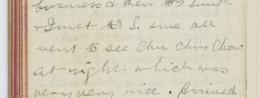 business & then Mr Smith
& I met Mr S. sme all
went to see Chu Chin Chow
at night which was
very very nice. Arrived